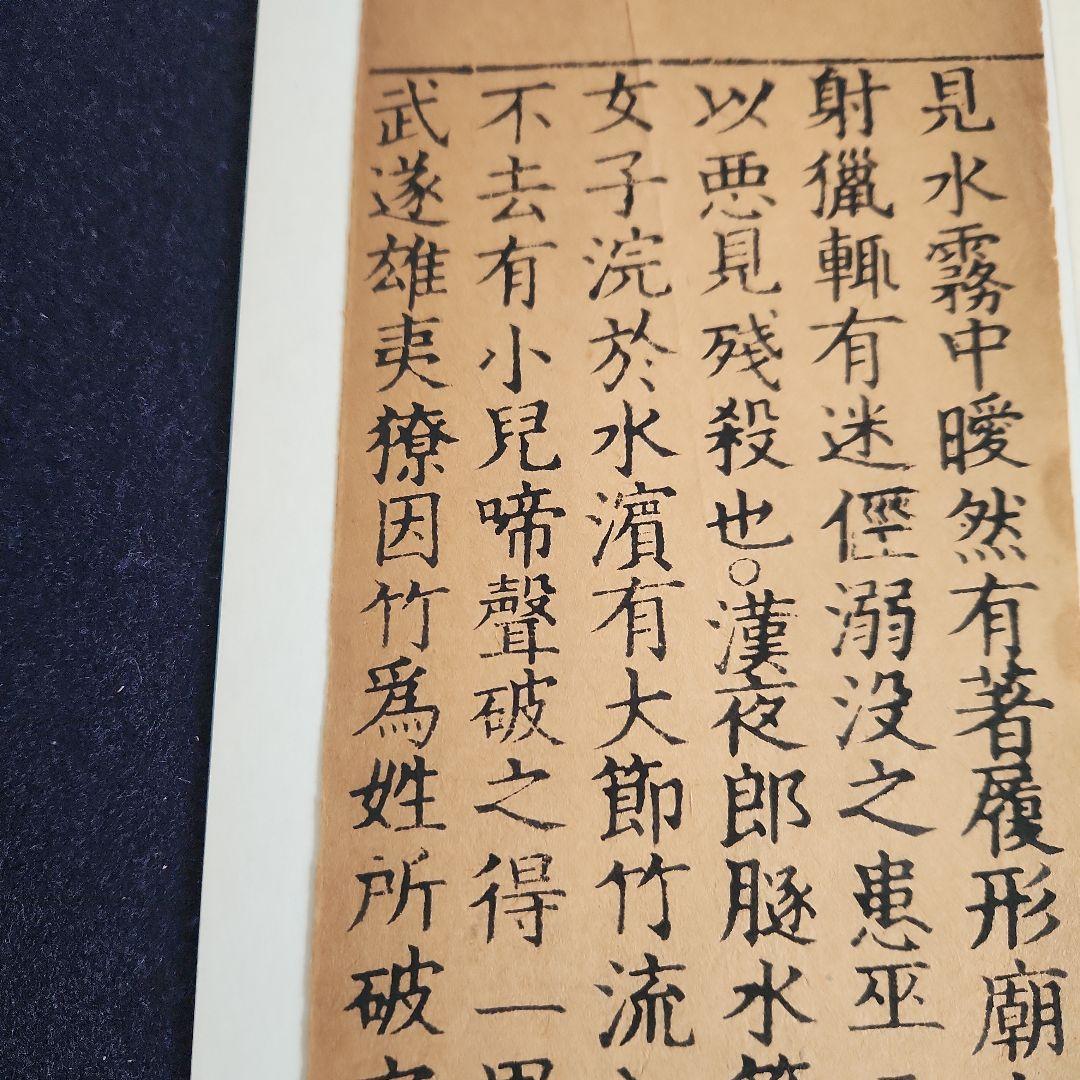 見水霧中曖然有著履形廟
射獵輙有迷俓溺没之患巫
以惡見殘殺也○漢夜郎䐂水
女子浣於水濵有大節竹流
不去有小兒啼聲破之得一
武遂雄夷獠因竹爲姓所破